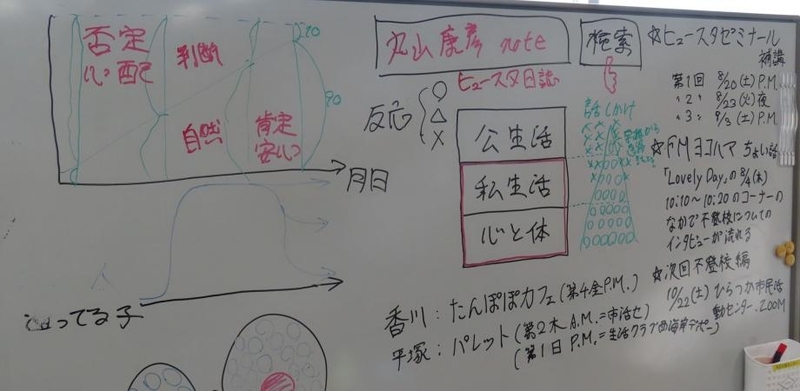 否定
心配
判断
自然
肯定
安心
10
90
月日
丸山康彦 note
検索
ヒュースタ日誌
反応
○
△
×
公生活
私生活
心と体
話しかけ
☆ヒュースタゼミナール
補講
第1回 8/20(土)P.M.
〃2〃 8/23(火)夜
〃3〃 9/3(土)P.M.
☆FMヨコハマ ちょい話
「Lovely Day」の8/4(木)
10:10〜10:20のコーナーの
なかで不登校についての
インタビューが流れる
☆次回不登校編
10/22(土)ひらつか市民活
動センター・ZOOM
香川:たんぽぽカフェ(第4金P.M.)
平塚:パレット(第2木A.M.=市活セ)
(第1日P.M.=生活クラブ西湘南デポー)
ってる子